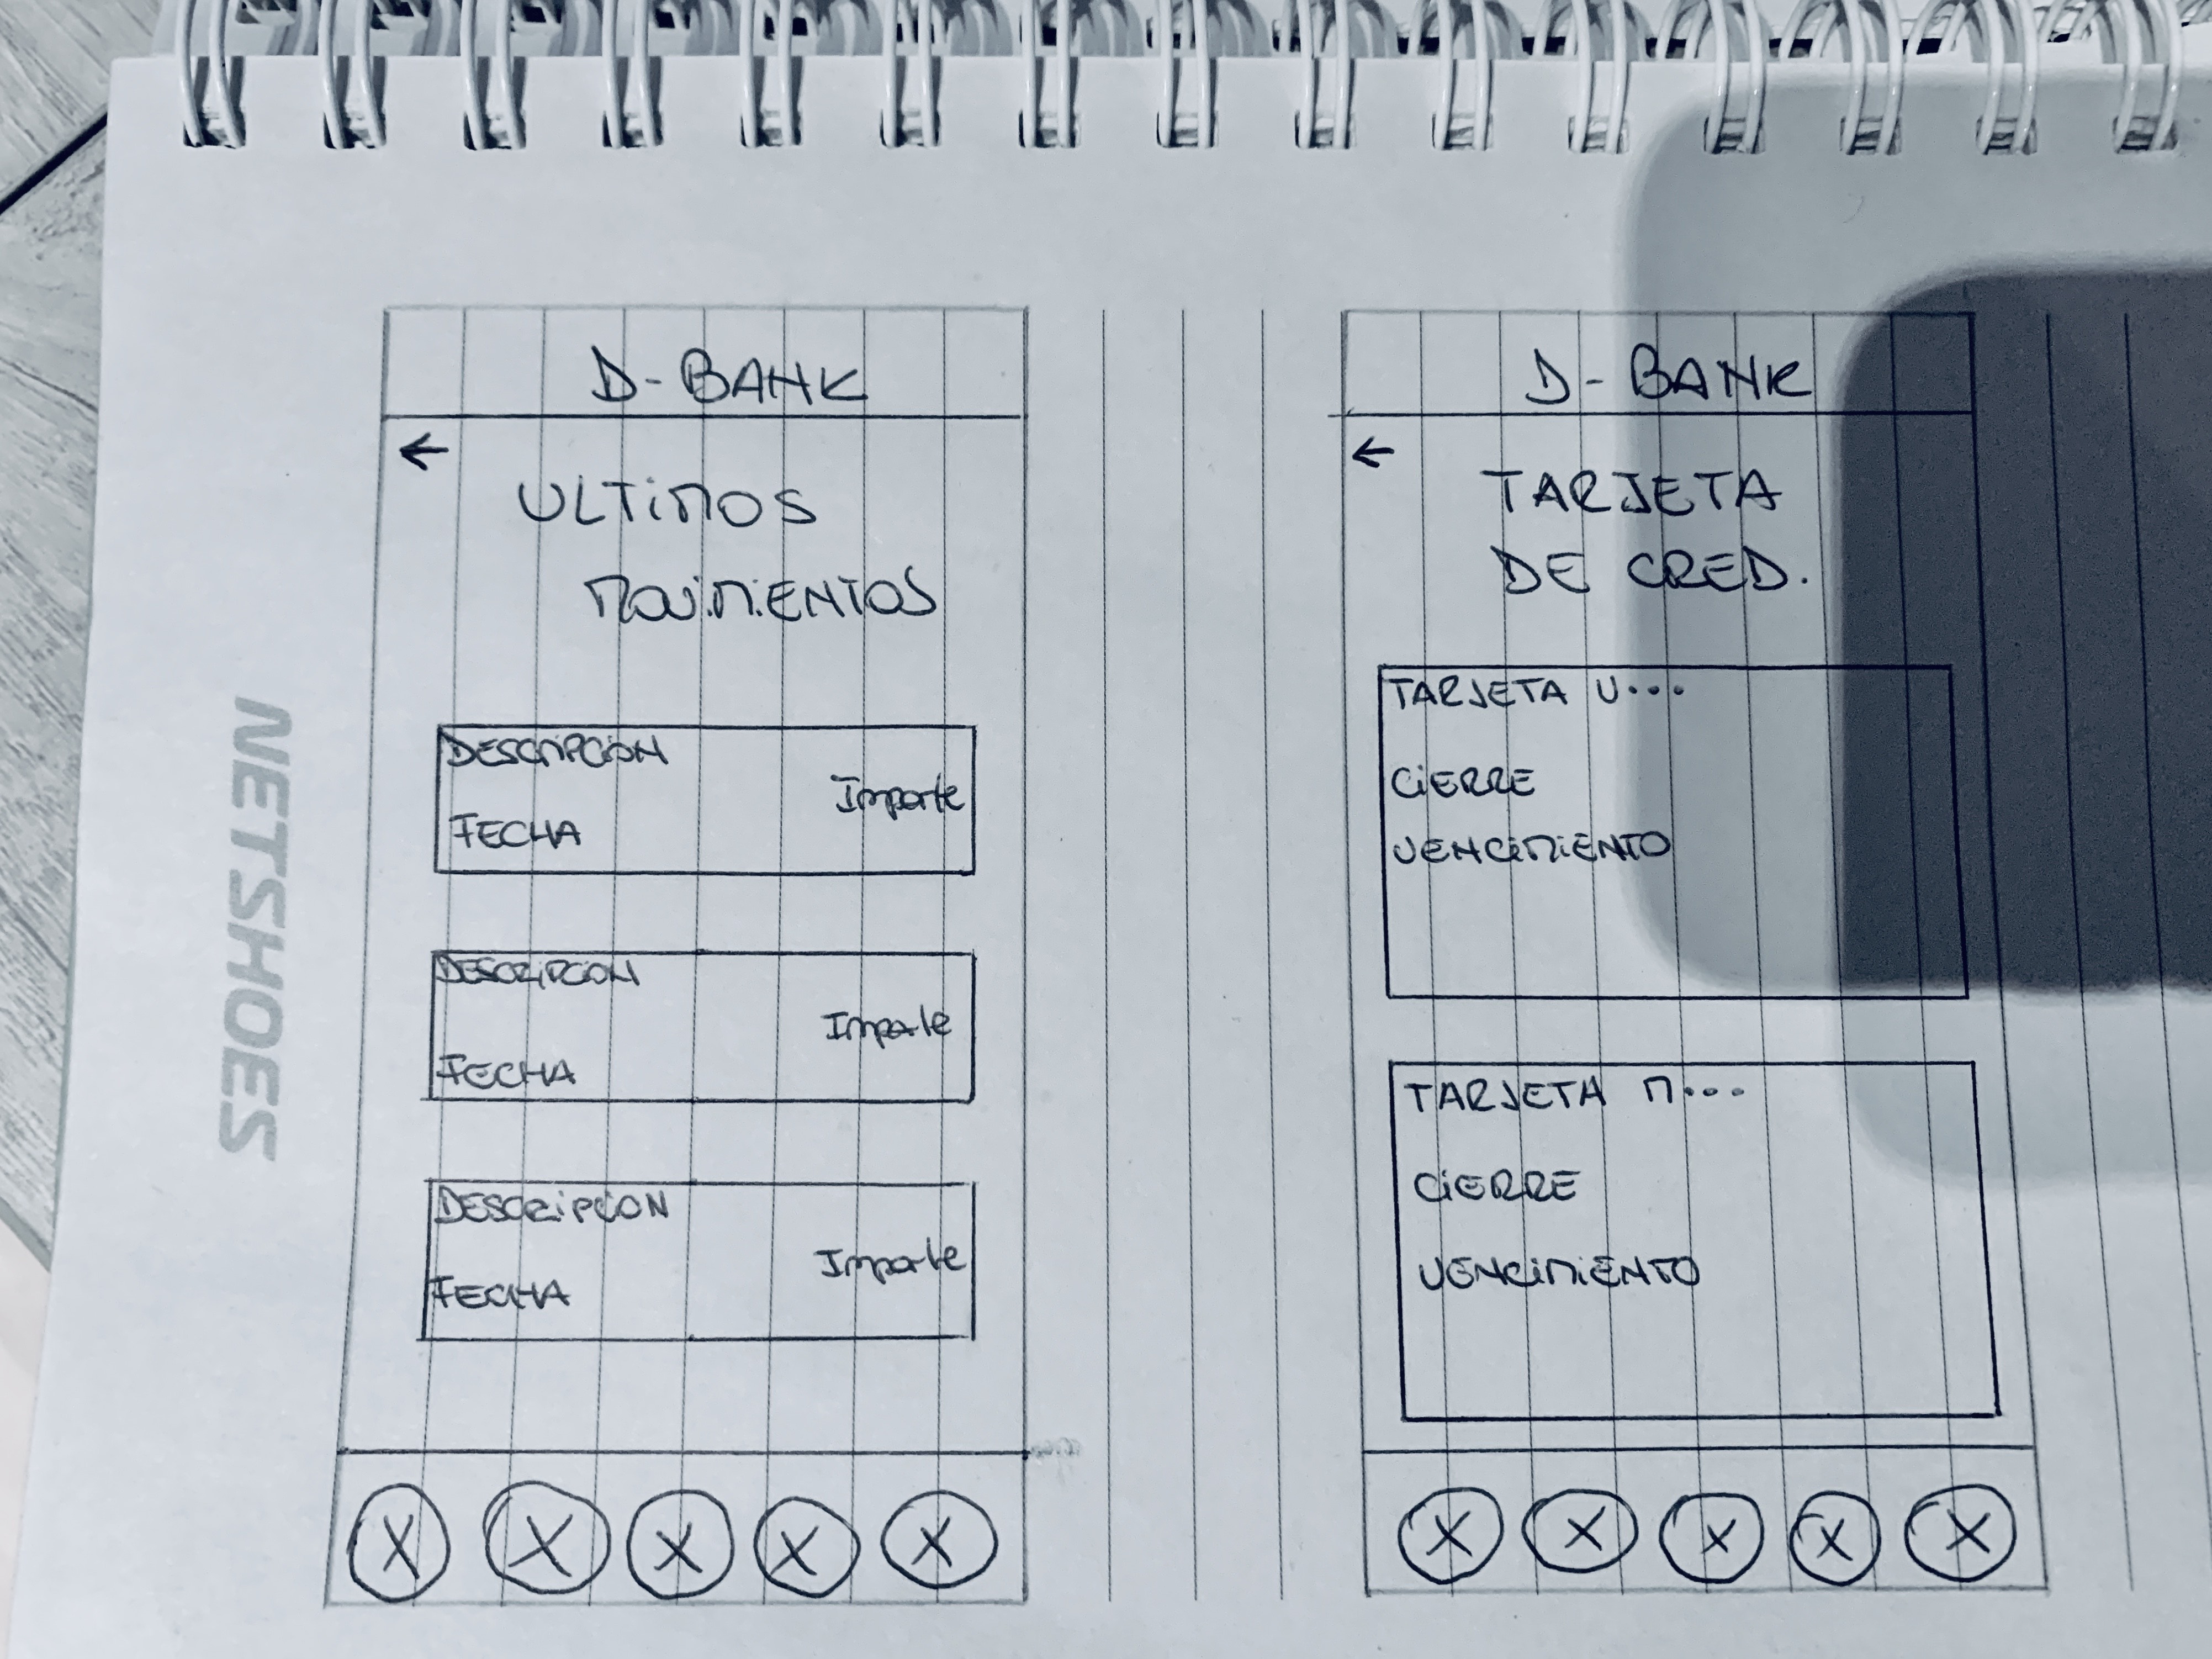 NETSHOES
D-BANK
←
ULTIMOS
MOVIMIENTOS
DESCRIPCION
Importe
FECHA
DESCRIPCION
Importe
FECHA
DESCRIPCION
Importe
FECHA
X X X X X
D-BANK
←
TARJETA
DE CRED.
TARJETA V...
CIERRE
VENCIMIENTO
TARJETA M...
CIERRE
VENCIMIENTO
X X X X X